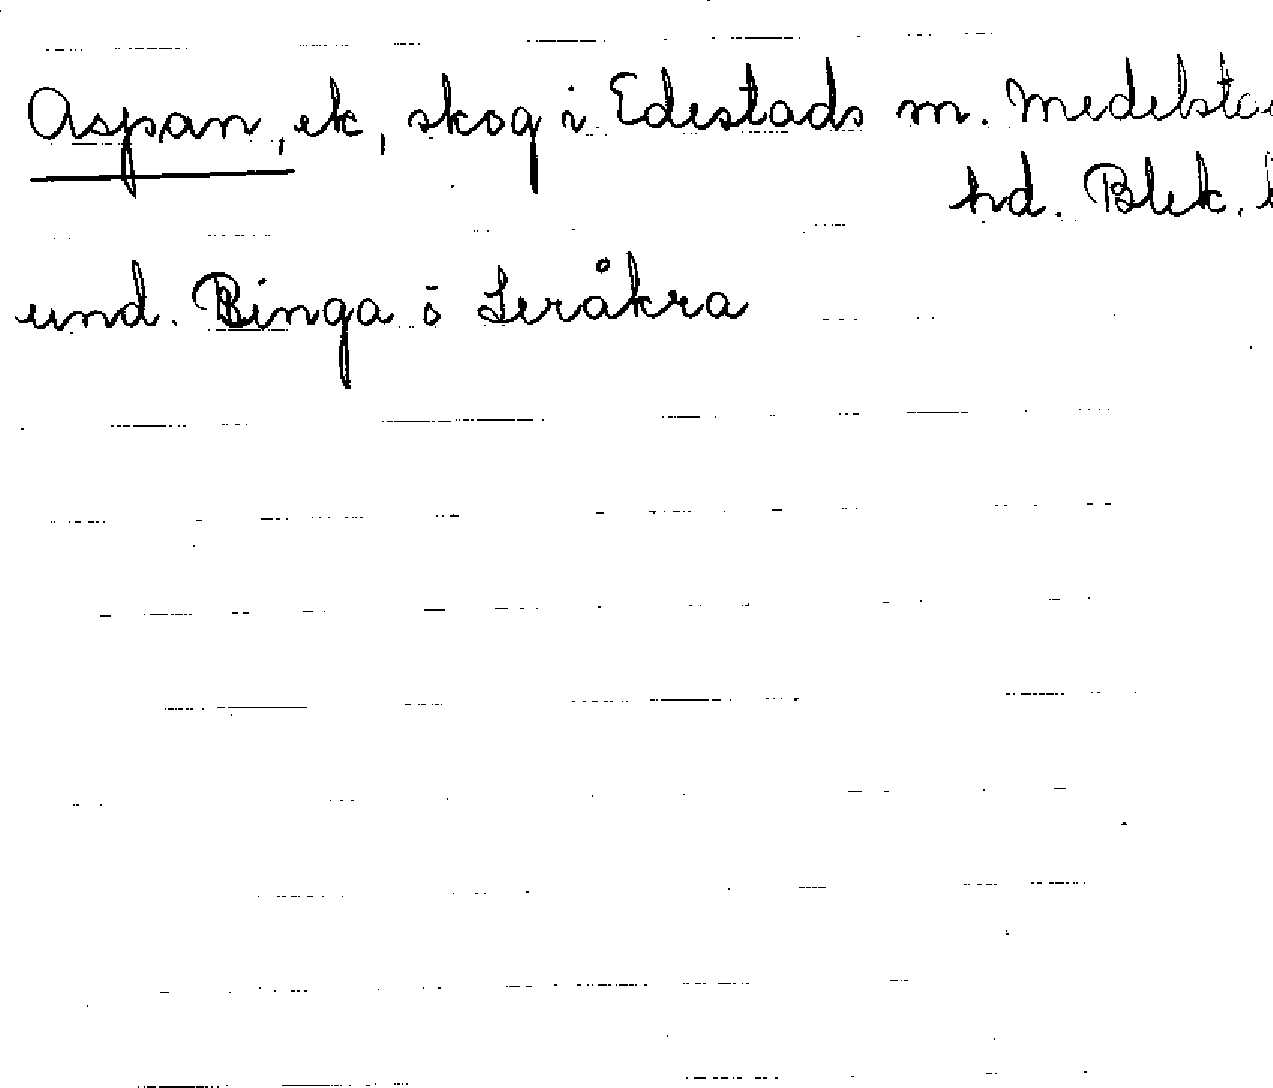 Aspan, ek, skog i Edestads m. Medelsta
hd. Blek. l
und. Binga ö Leråkra